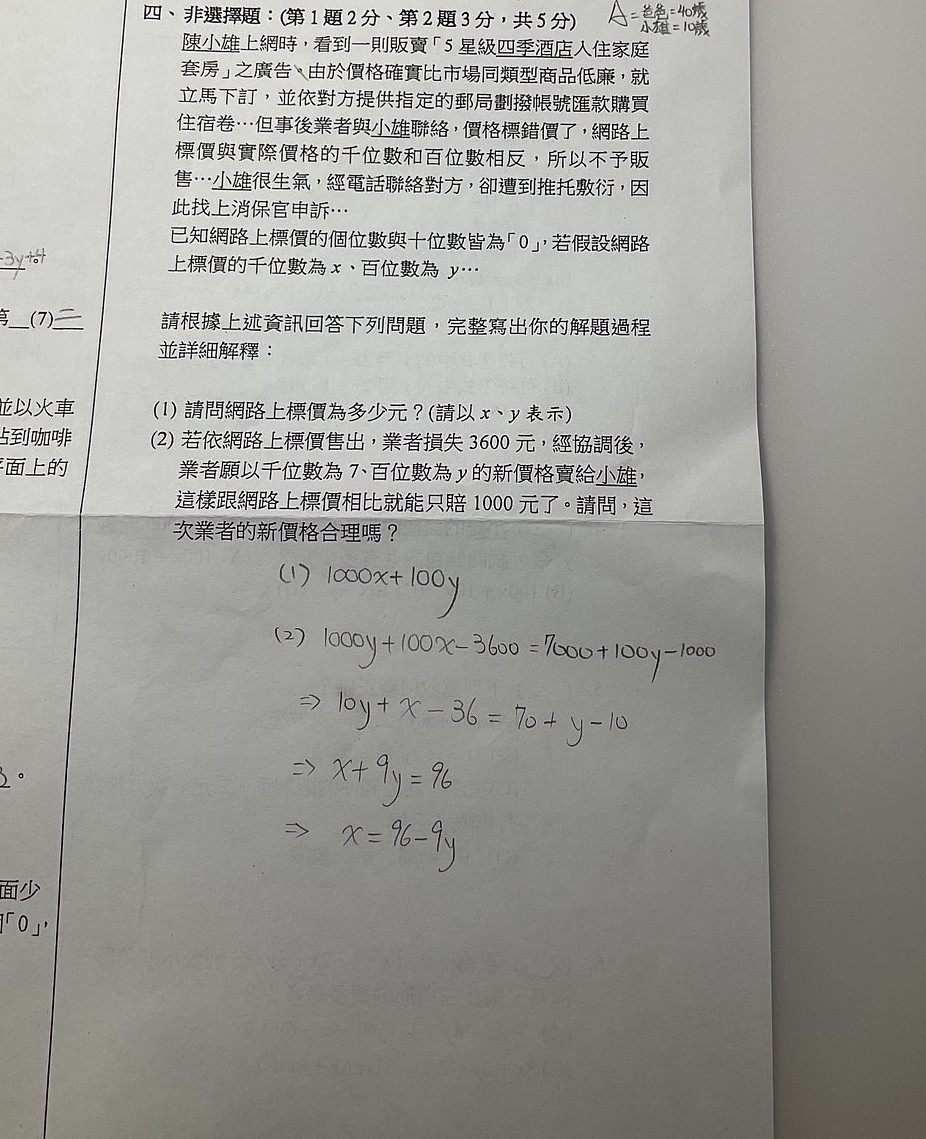 四、非選擇題：(第1題2分、第2題3分，共5分)
A=爸爸=40歲
小雄=10歲
陳小雄上網時，看到一則販賣「5 星級四季酒店入住家庭
套房」之廣告、由於價格確實比市場同類型商品低廉，就
立馬下訂，並依對方提供指定的郵局劃撥帳號匯款購買
住宿卷…但事後業者與小雄聯絡，價格標錯價了，網路上
標價與實際價格的千位數和百位數相反，所以不予販
售…小雄很生氣，經電話聯絡對方，卻遭到推托敷衍，因
此找上消保官申訴…
已知網路上標價的個位數與十位數皆為「0」，若假設網路
上標價的千位數為 x、百位數為 y…
請根據上述資訊回答下列問題，完整寫出你的解題過程
並詳細解釋：
(1) 請問網路上標價為多少元？(請以 x、y 表示)
(2) 若依網路上標價售出，業者損失 3600 元，經協調後，
業者願以千位數為 7、百位數為 y 的新價格賣給小雄，
這樣跟網路上標價相比就能只賠 1000 元了。請問，這
次業者的新價格合理嗎？
(1) 1000x+100y
(2) 1000y+100x-3600=7000+100y-1000
⇒ 10y+x-36=70+y-10
⇒ x+9y=96
⇒ x=96-9y
第__(7)二
並以火車
站到咖啡
平面上的
面少
「0」，